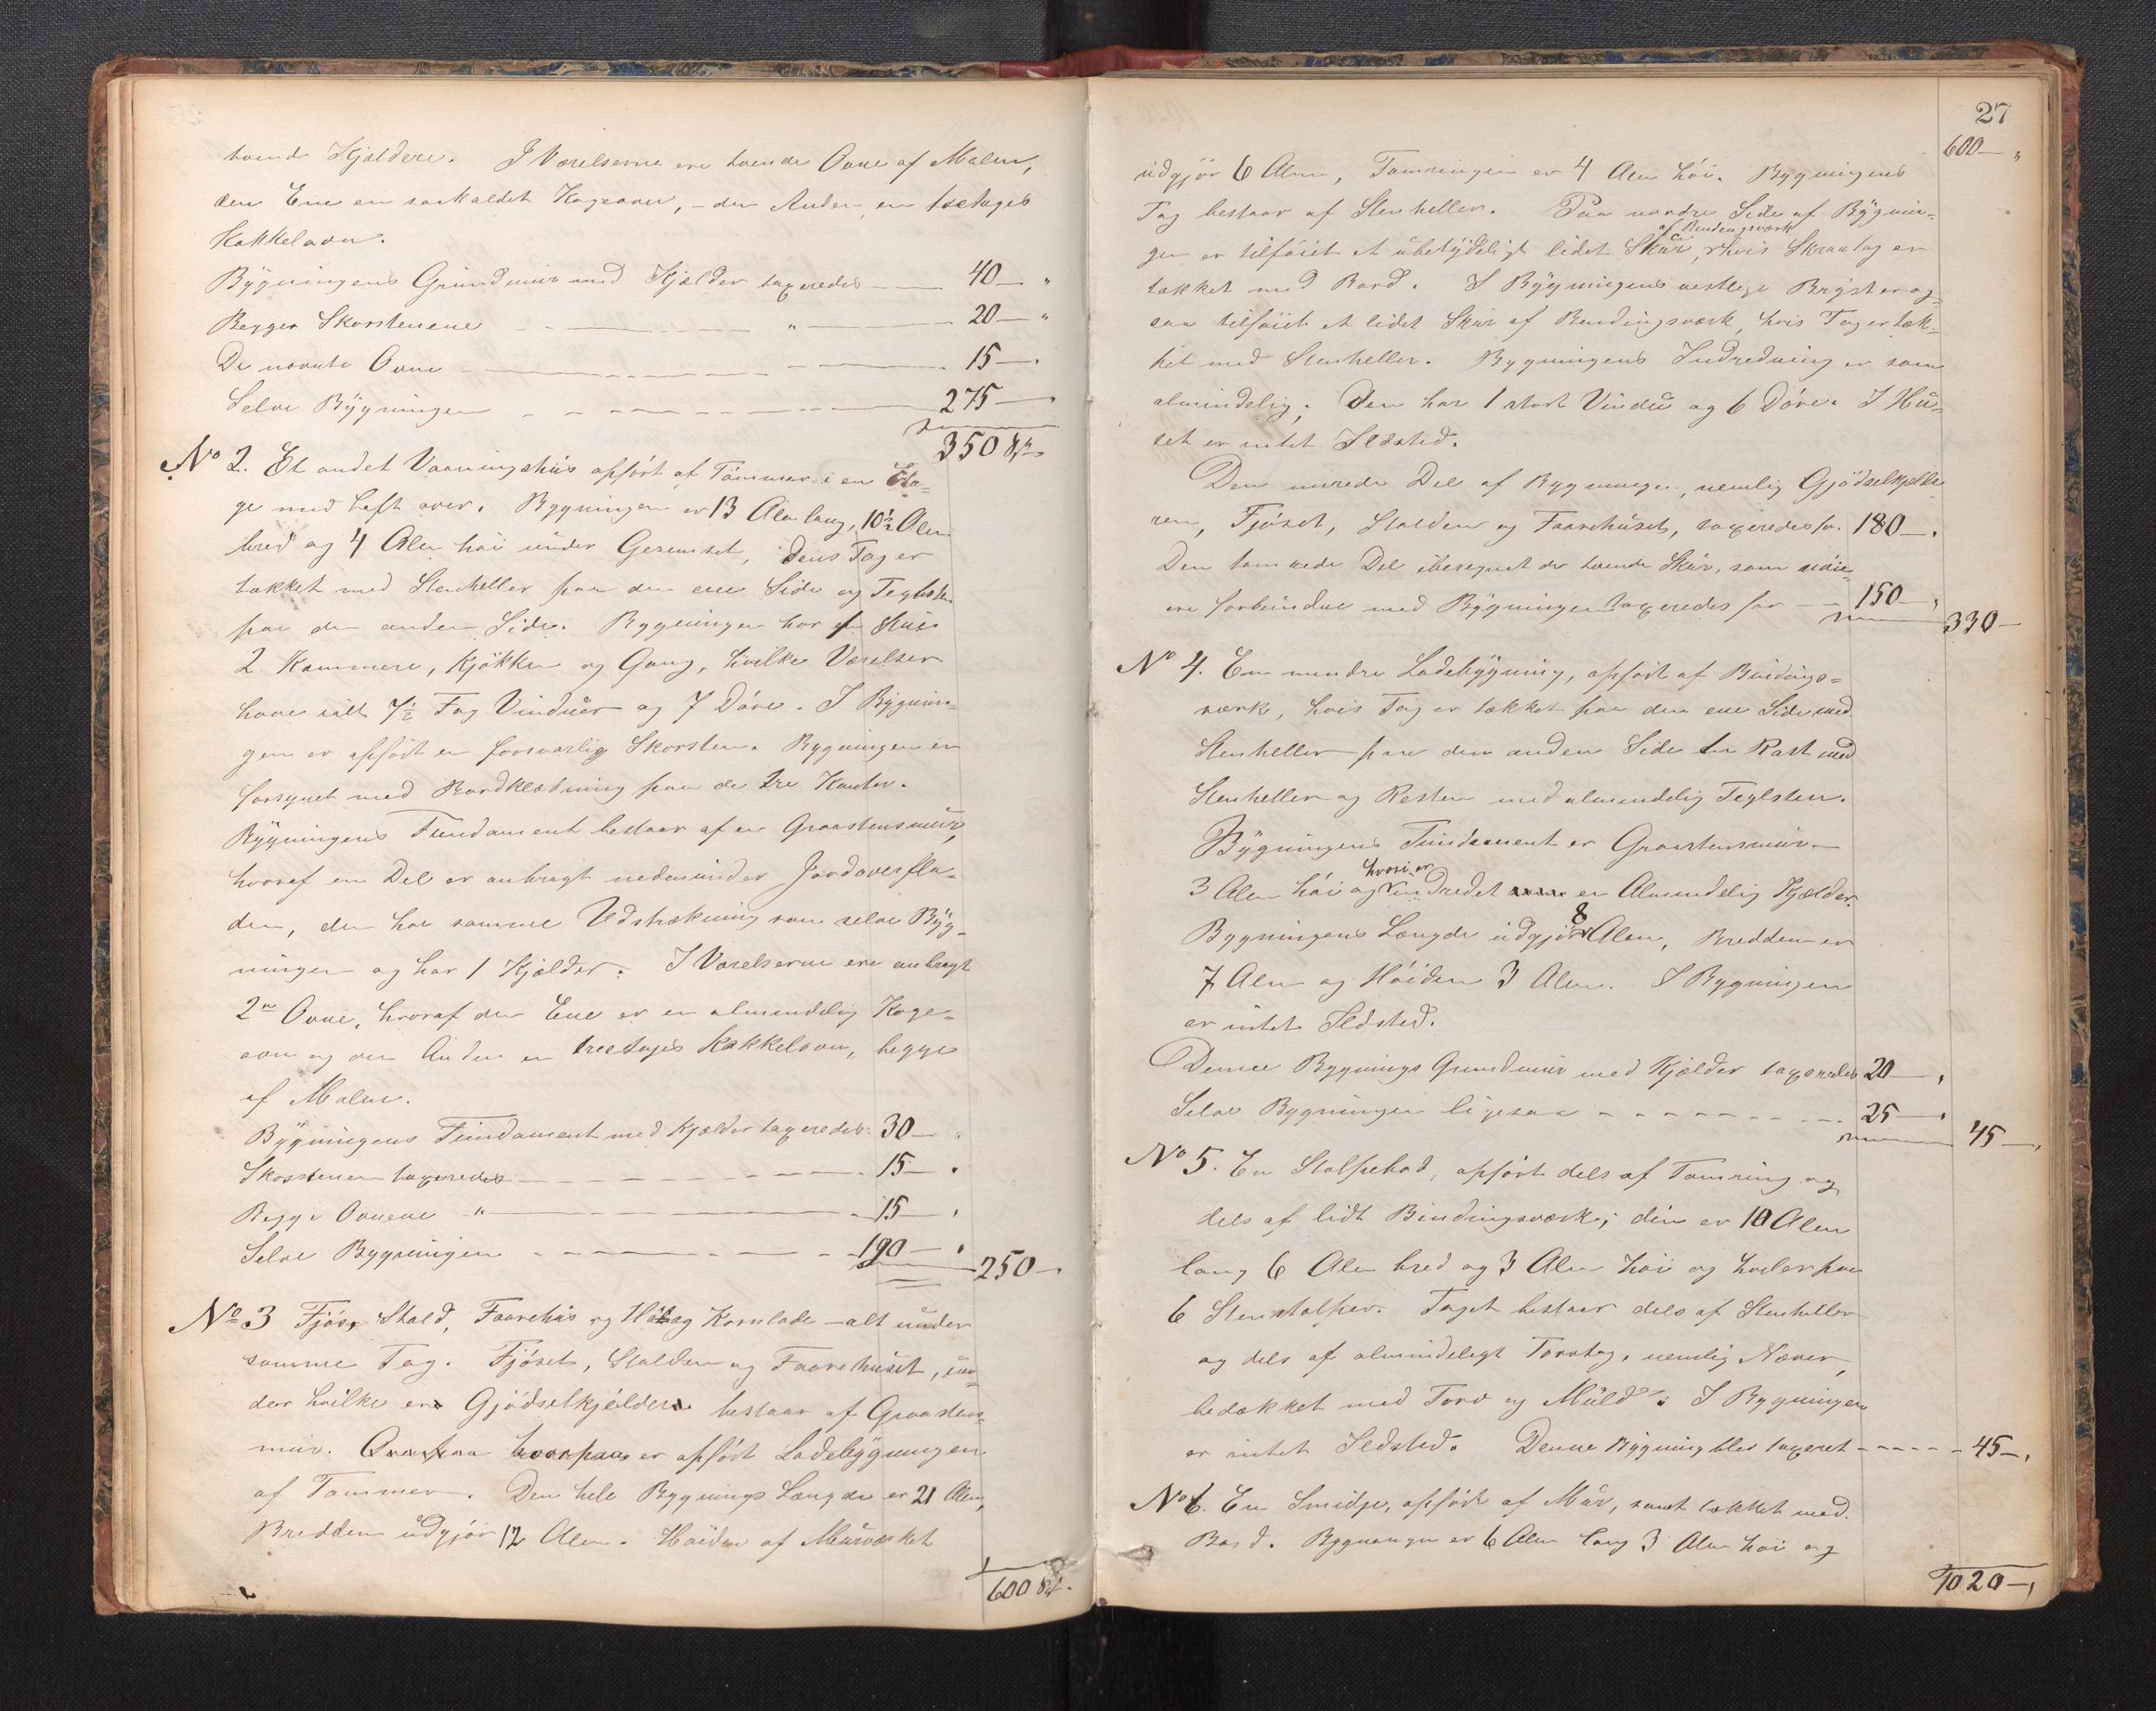 tvende Kjældere. I Værelserne ere tvende Ovne af Malm,
den Ene en saakaldet Kogeovn, - den Anden en toetages
Kakkelovn.
Bygningens Grundmuur med Kjælder taxeredes 40 "
Begge Skorstenene " 20 "
De nævnte Ovne 15 "
Selve Bygningen 275
350 Kr
No 2. Et andet Vaaningshus opført af Tømmer i en Eta-
ge med Loft over. Bygningen er 13 Alen lang, 10½ Alen
bred og 4 Alen høi under Gesemset, dens Tag er
tækket med Stenheller paa den ene Side og Teglsten
paa den anden Side. Bygningen har Stue
2 Kammere, Kjøkken og Gang, hvilke Værelser
have ialt 7½ Fag Vinduer og 7 Døre. I Bygnin-
gen er opført en forsvarlig Skorsten. Bygningen er
forsynet med Bordklædning paa de tre Kanter.
Bygningens Fundament bestaar af en Graastensmuur,
hvoraf en Del er anbragt nedenunder Jordoverfla-
den, den har samme Udstrækning som selve Byg-
ningen og har 1 Kjælder. I Værelserne ere anbragt
2de Ovne, hvoraf den Ene er en almindelig Koge-
ovn og den Anden en treetages Kakkelovn, begge
af Malm.
Bygningens Fundament med Kjælder taxeredes 30
Skorstenen taxeredes 15
Begge Ovnene " 15
Selve Bygningen 190
250
No 3 Fjøs, Stald, Faarehus og Hø og Kornlade - alt under
samme Tag. Fjøset, Stalden og Faarehuset, un-
der hvilke er Gjødselkjelder bestaar af Graastens-
mur. hvorpaa er opført Ladebygningen
af Tømmer. Den hele Bygnings Længde er 21 Alen,
Bredden udgjør 12 Alen. Høiden af Murværket
600 Kr.
27
600 "
udgjør 6 Alen, Tømringen er 4 Alen høi. Bygningens
Tag bestaar af Stenheller. Paa nordre Side af Bygnin-
af Bindingsværk
gen er tilføiet et ubetydeligt lidet Skur, hvis Skraatag er
tækket med Bord. I Bygningens vestlige Bryst er og-
saa tilføiet et lidet Skur af Bindingsværk, hvis Tag er tæk-
ket med Stenheller. Bygningens Indredning er som
almindelig; Den har 1 stort Vindu og 6 Døre. I Hu-
set er intet Ildsted.
Den murede Del af Bygningen, nemlig Gjødselkjelle-
ren, Fjøset, Stalden og Faarehuset, taxeredes for 180
Den tømrede Del iberegnet de tvende Skur, som
ere forbundne med Bygningen taxeredes for 150
330
No 4. En mindre Ladebygning, opført af Bindings-
værk, hvis Tag er tækket paa den ene Side med
Stenheller paa den anden Side en Rast med
Stenheller og Resten med almindelig Teglsten.
Bygningens Fundament er Graastensmur
hvori er
3 Alen høi og indredet en Almindelig Kjælder.
Bygningens Længde udgjør 8 Alen, Bredden er
7 Alen og Høiden 3 Alen. I Bygningen
er intet Ildsted.
Denne Bygnings Grundmur med Kjælder taxeredes 20
Selve Bygningen ligesaa 25
45
No 5. En Stolpebod, opført dels af Tømring og
dels af lidt Bindingsværk; den er 10 Alen
lang 6 Alen bred og 3 Alen høi og hviler paa
6 Stenstolper. Taget bestaar dels af Stenheller
og dels af almindeligt Torvtag, nemlig Næver,
bedækket med Torv og Muld. I Bygningen
er intet Ildsted. Denne Bygning blev taxeret 45
No 6. En Smidje, opført af Mur, samt tækket med
Bord. Bygningen er 6 Alen lang 3 Alen høi og
1020